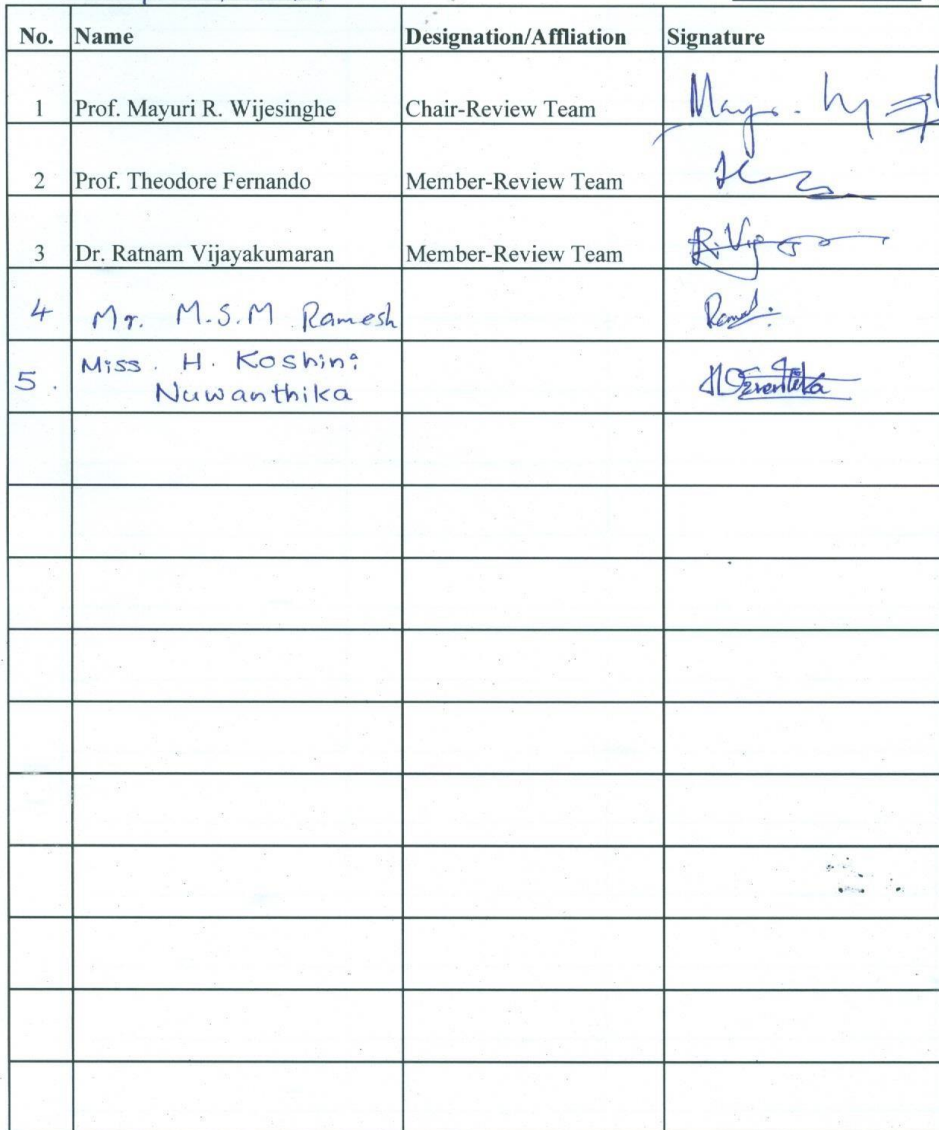 No. Name Designation/Affliation Signature
1 Prof. Mayuri R. Wijesinghe Chair-Review Team
2 Prof. Theodore Fernando Member-Review Team
3 Dr. Ratnam Vijayakumaran Member-Review Team R. Vij
4 Mr. M.S.M Ramesh
5. Miss. H. Koshini
Nuwanthika